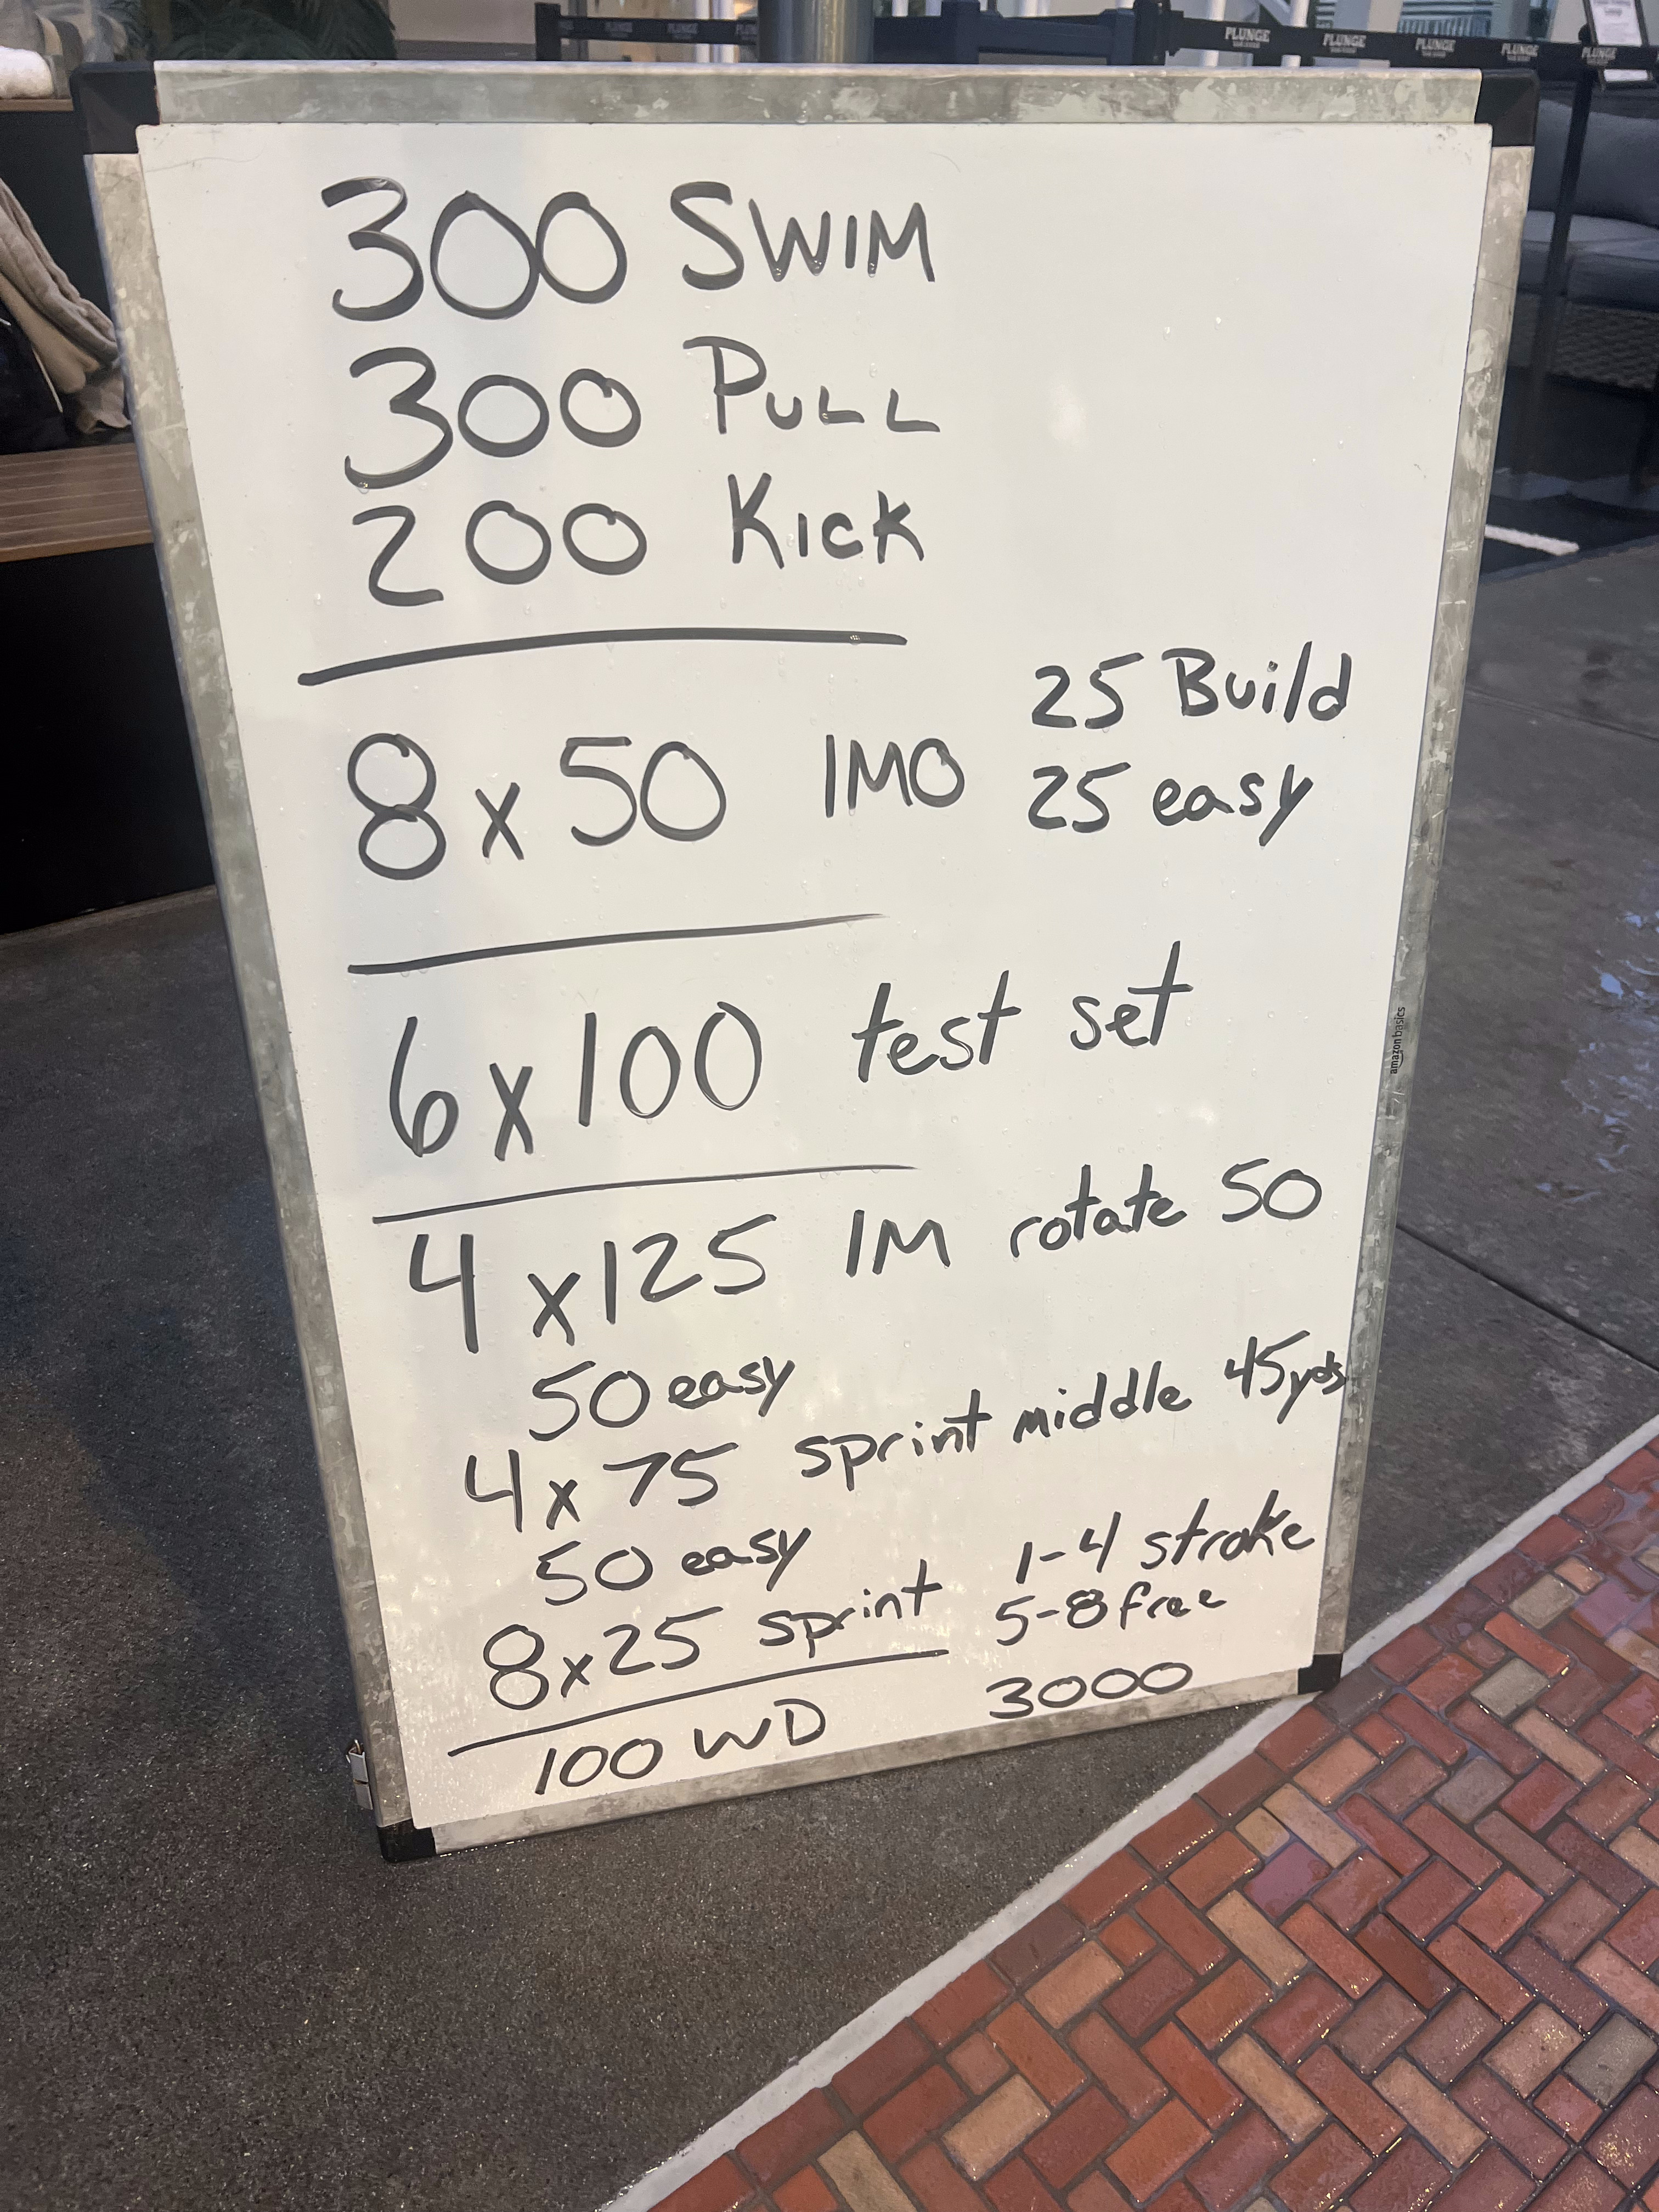 PLUNGE
PLUNGE PLUNGE PLUNGE PLUNGE PLUNGE
300 SWIM
300 PULL
200 KICK
8 x 50 IMO 25 Build
25 easy
6 x 100 test set
4 x 125 IM rotate 50
50 easy
4 x 75 sprint middle 45yds
50 easy
8 x 25 sprint 1-4 stroke
5-8 free
100 WD 3000
amazon basics